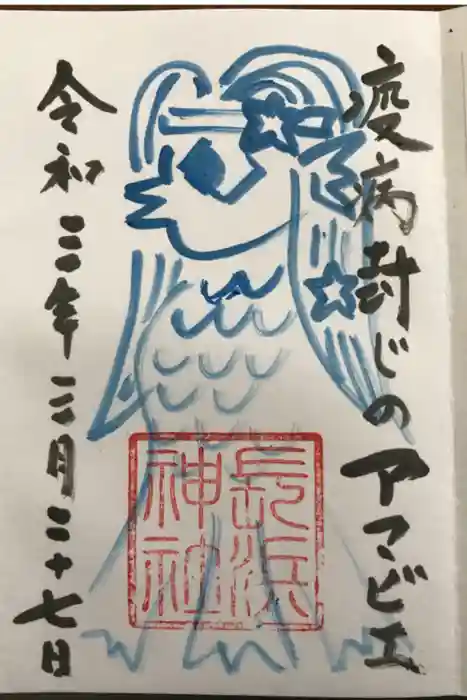 疫病封じのアマビエ
令和三年三月二十七日
長浜
神社